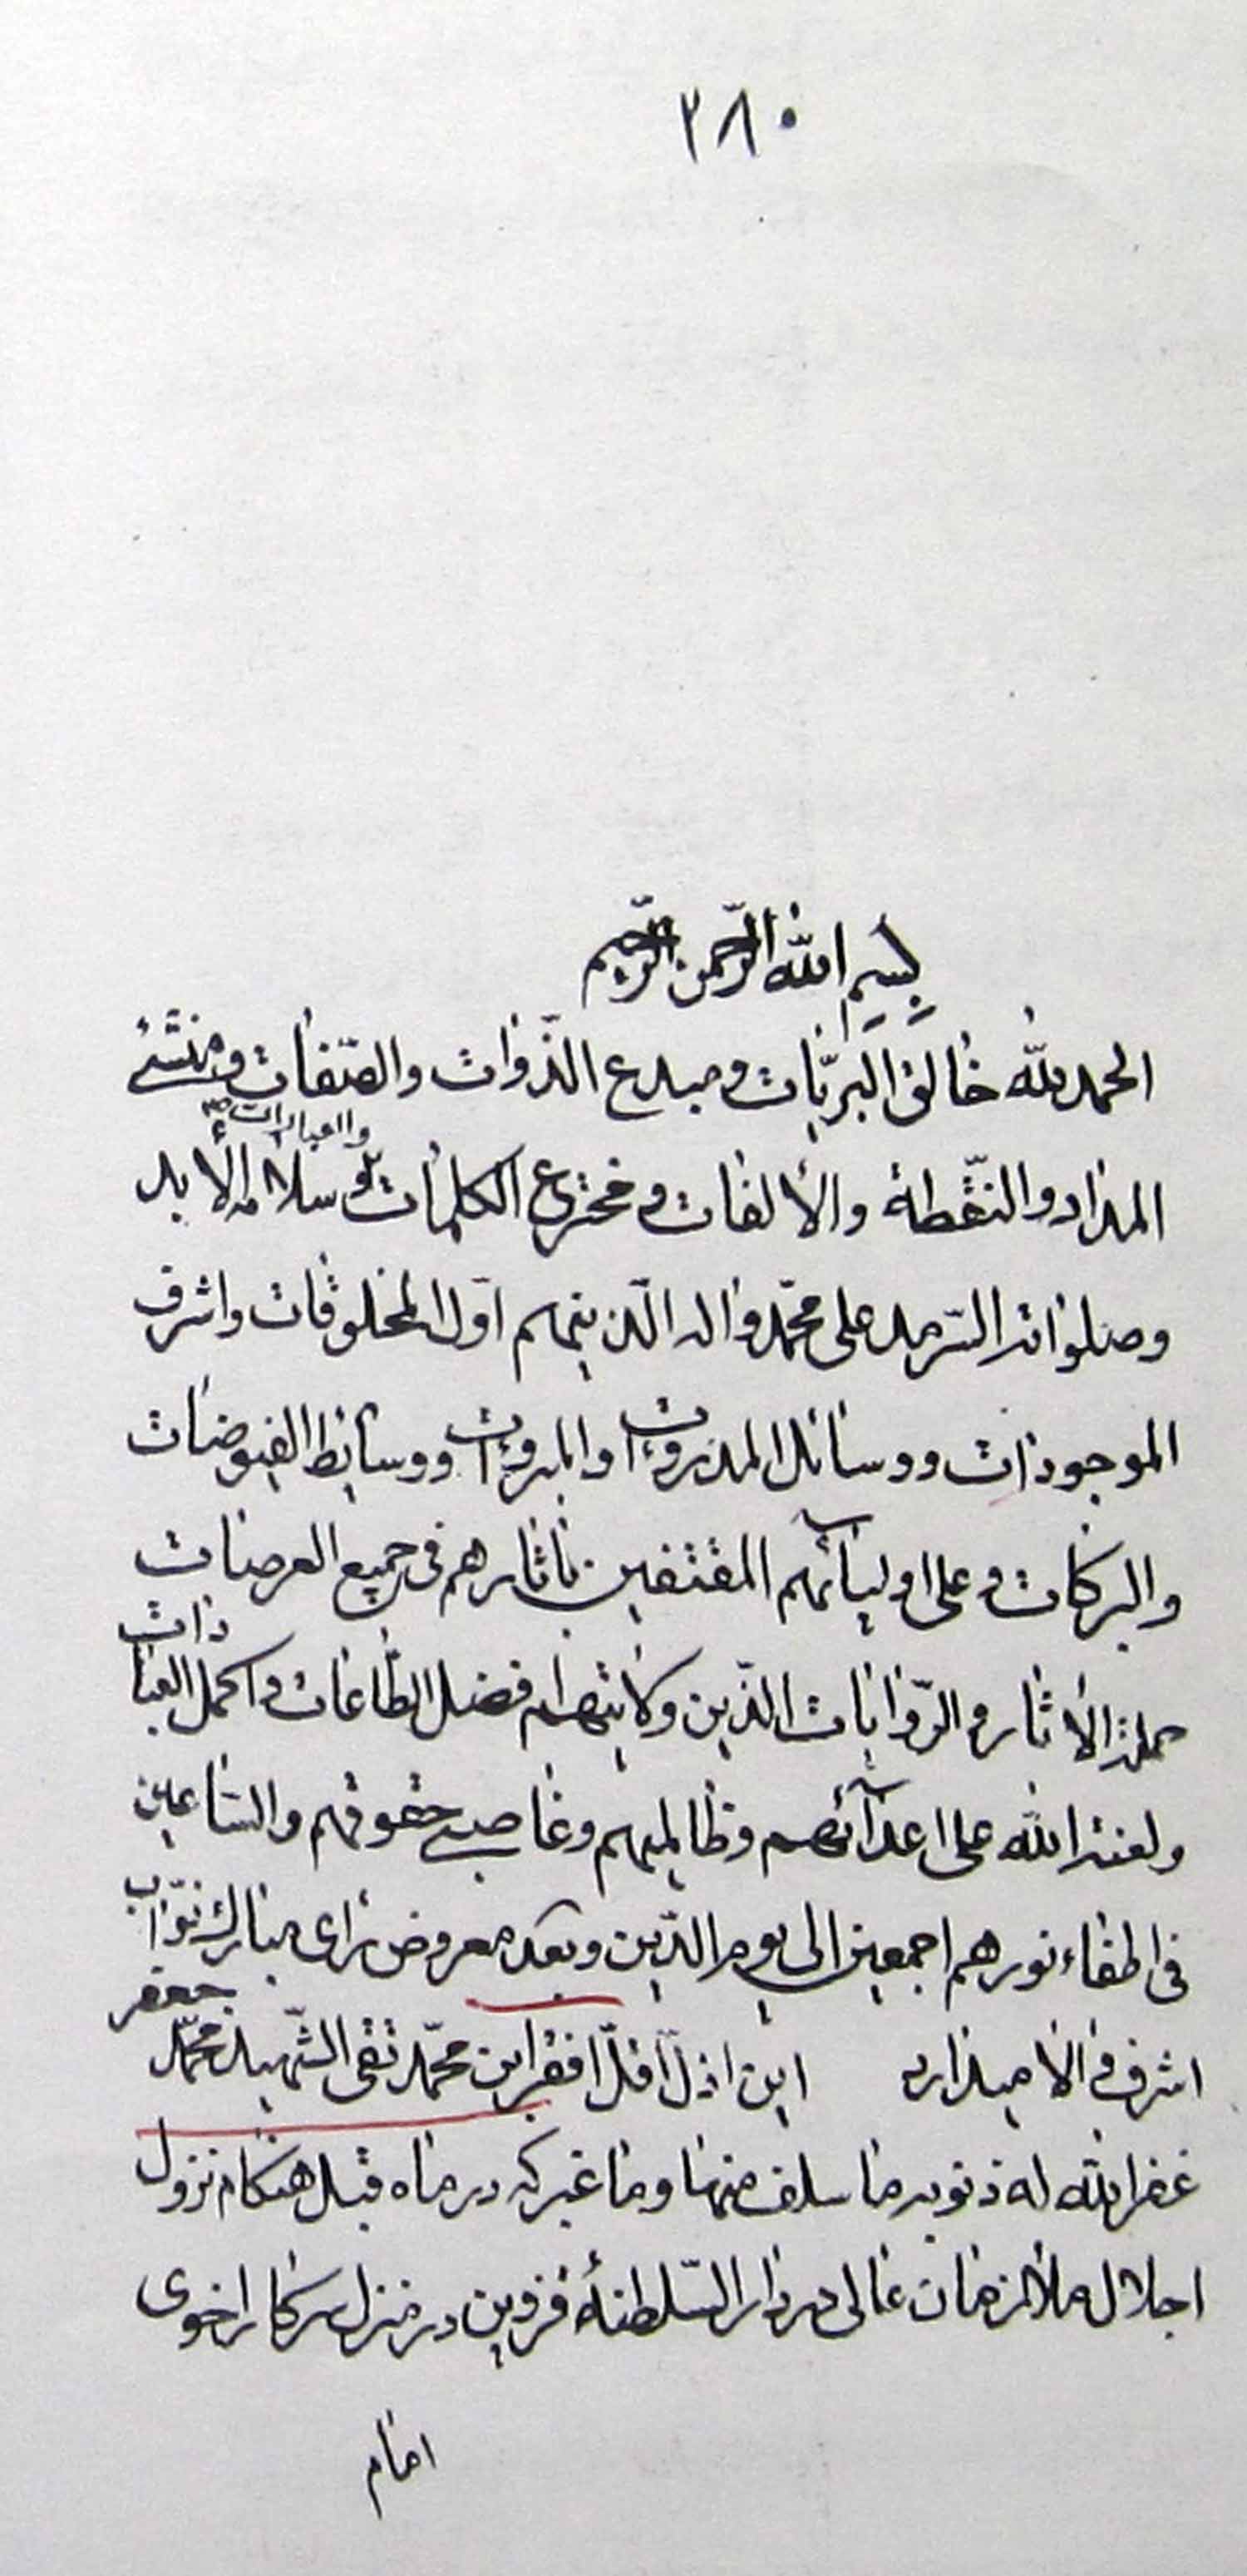 ٢٨٠
بسم الله الرّحمن الرّحيم
الحمد لله خالق البريّات و مبدع الذّوات والصّفات و منشئ
والعبارات صح
المداد والنّقطة والألفات و مخترع الكلمات و سلامه الأبد
وصلواته السّرمد على محمّد واله الّذينهم اوّل المخلوقات واشرف
الموجودات ووسائل المذروءات والمبروءات ووسايط الفيوضات
والبركات و على اوليائهم المقتفين باثارهم فى جميع العرصات
حملة الأثار و الرّوايات الذّين ولايتهم افضل الطّاعات و اكمل العبادات
ولعنة الله على اعدآئهم وظالميهم وغاصبى حقوقهم والسّاعين
فى اطفاء نورهم اجمعين الى يوم الدّين وبعد معروض راى مبارك نوّاب
اشرف والا ميدارد اين اذلّ اقلّ افقر ابن محمّد تقى الشّهيد محمّد جعفر
غفر الله له ذنوبه ما سلف منها وما غبر كه در ماه قبل هنكام نزول
اجلال ملازمان عالى در دار السّلطنهٔ قزوين در منزل سركار اخوى
امام